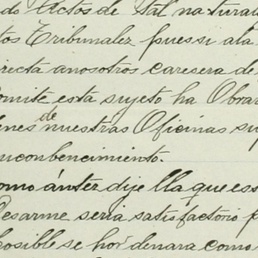 do Actos de tal natura
tos Tribunalez pues si a la
irecta anosotros careserá de
omite esta sujeto ha Obrar
enes de nuestras Oficinas su
nconbencimiento.
omo ánter dije lla que es
Desarme seria satisfactorio p
posible se hordenara como